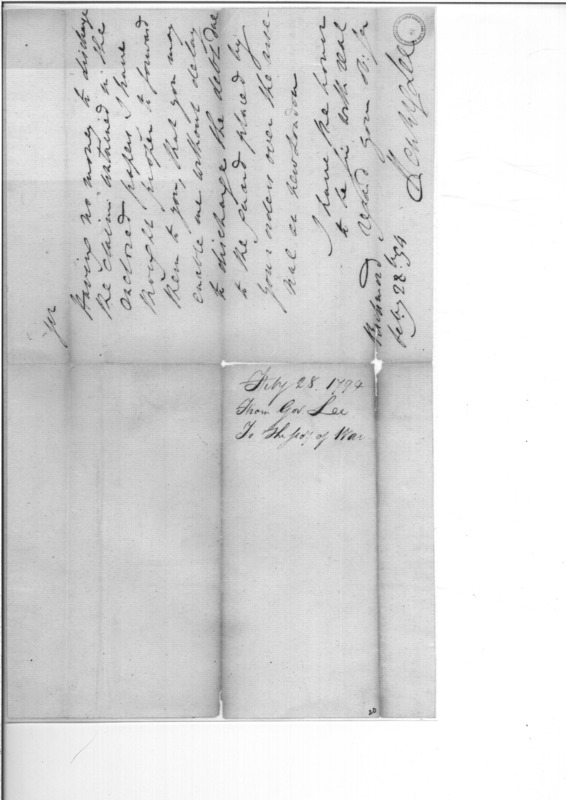 Sir
Having no money to discharge
the claim contained in the
enclosed paper I have
thought proper to forward
them to you, that you may
enable me without delay
to discharge the debt due
to the guard placed by
your orders over the arse-
nal at new London
I have the honor
to be sir with real
regard your
Henry Lee
Richmond
feby 28th 94
Feby 28. 1794
From Gov Lee
To The Secy of War
20